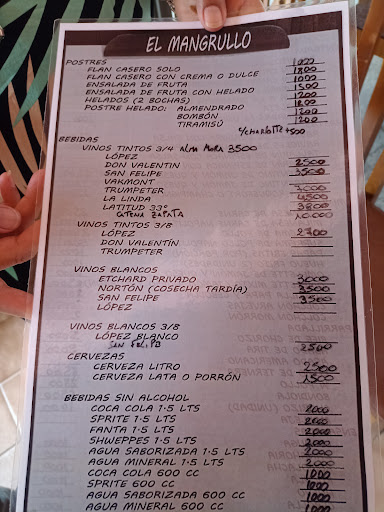 EL MANGRULLO
POSTRES
FLAN CASERO SOLO 1000
FLAN CASERO CON CREMA O DULCE 1800
ENSALADA DE FRUTA 1000
ENSALADA DE FRUTA CON HELADO 1500
HELADOS (2 BOCHAS) 1200
POSTRE HELADO: ALMENDRADO
BOMBÓN 1200
TIRAMISÚ 1200
C/CHARLOTTE +500
BEBIDAS
VINOS TINTOS 3/4 ALMA MORA 3500
LÓPEZ
DON VALENTIN 2500
SAN FELIPE 3500
VAKMONT
TRUMPETER 7000
LA LINDA 4500
LATITUD 33° 3800
CATENA ZAPATA 10.000
VINOS TINTOS 3/8
LÓPEZ 2700
DON VALENTÍN
TRUMPETER
VINOS BLANCOS
ETCHARD PRIVADO 3000
NORTÓN (COSECHA TARDÍA) 3500
SAN FELIPE 3500
LÓPEZ
VINOS BLANCOS 3/8
LÓPEZ BLANCO
SAN FELIPE 2500
CERVEZAS
CERVEZA LITRO 2500
CERVEZA LATA O PORRÓN 1500
BEBIDAS SIN ALCOHOL
COCA COLA 1.5 LTS 2000
SPRITE 1.5 LTS 2000
FANTA 1.5 LTS 2000
SHWEPPES 1.5 LTS 2000
AGUA SABORIZADA 1.5 LTS 2000
AGUA MINERAL 1.5 LTS 2000
COCA COLA 600 CC 1000
SPRITE 600 CC 1000
AGUA SABORIZADA 600 CC 1000
AGUA MINERAL 600 CC 1000